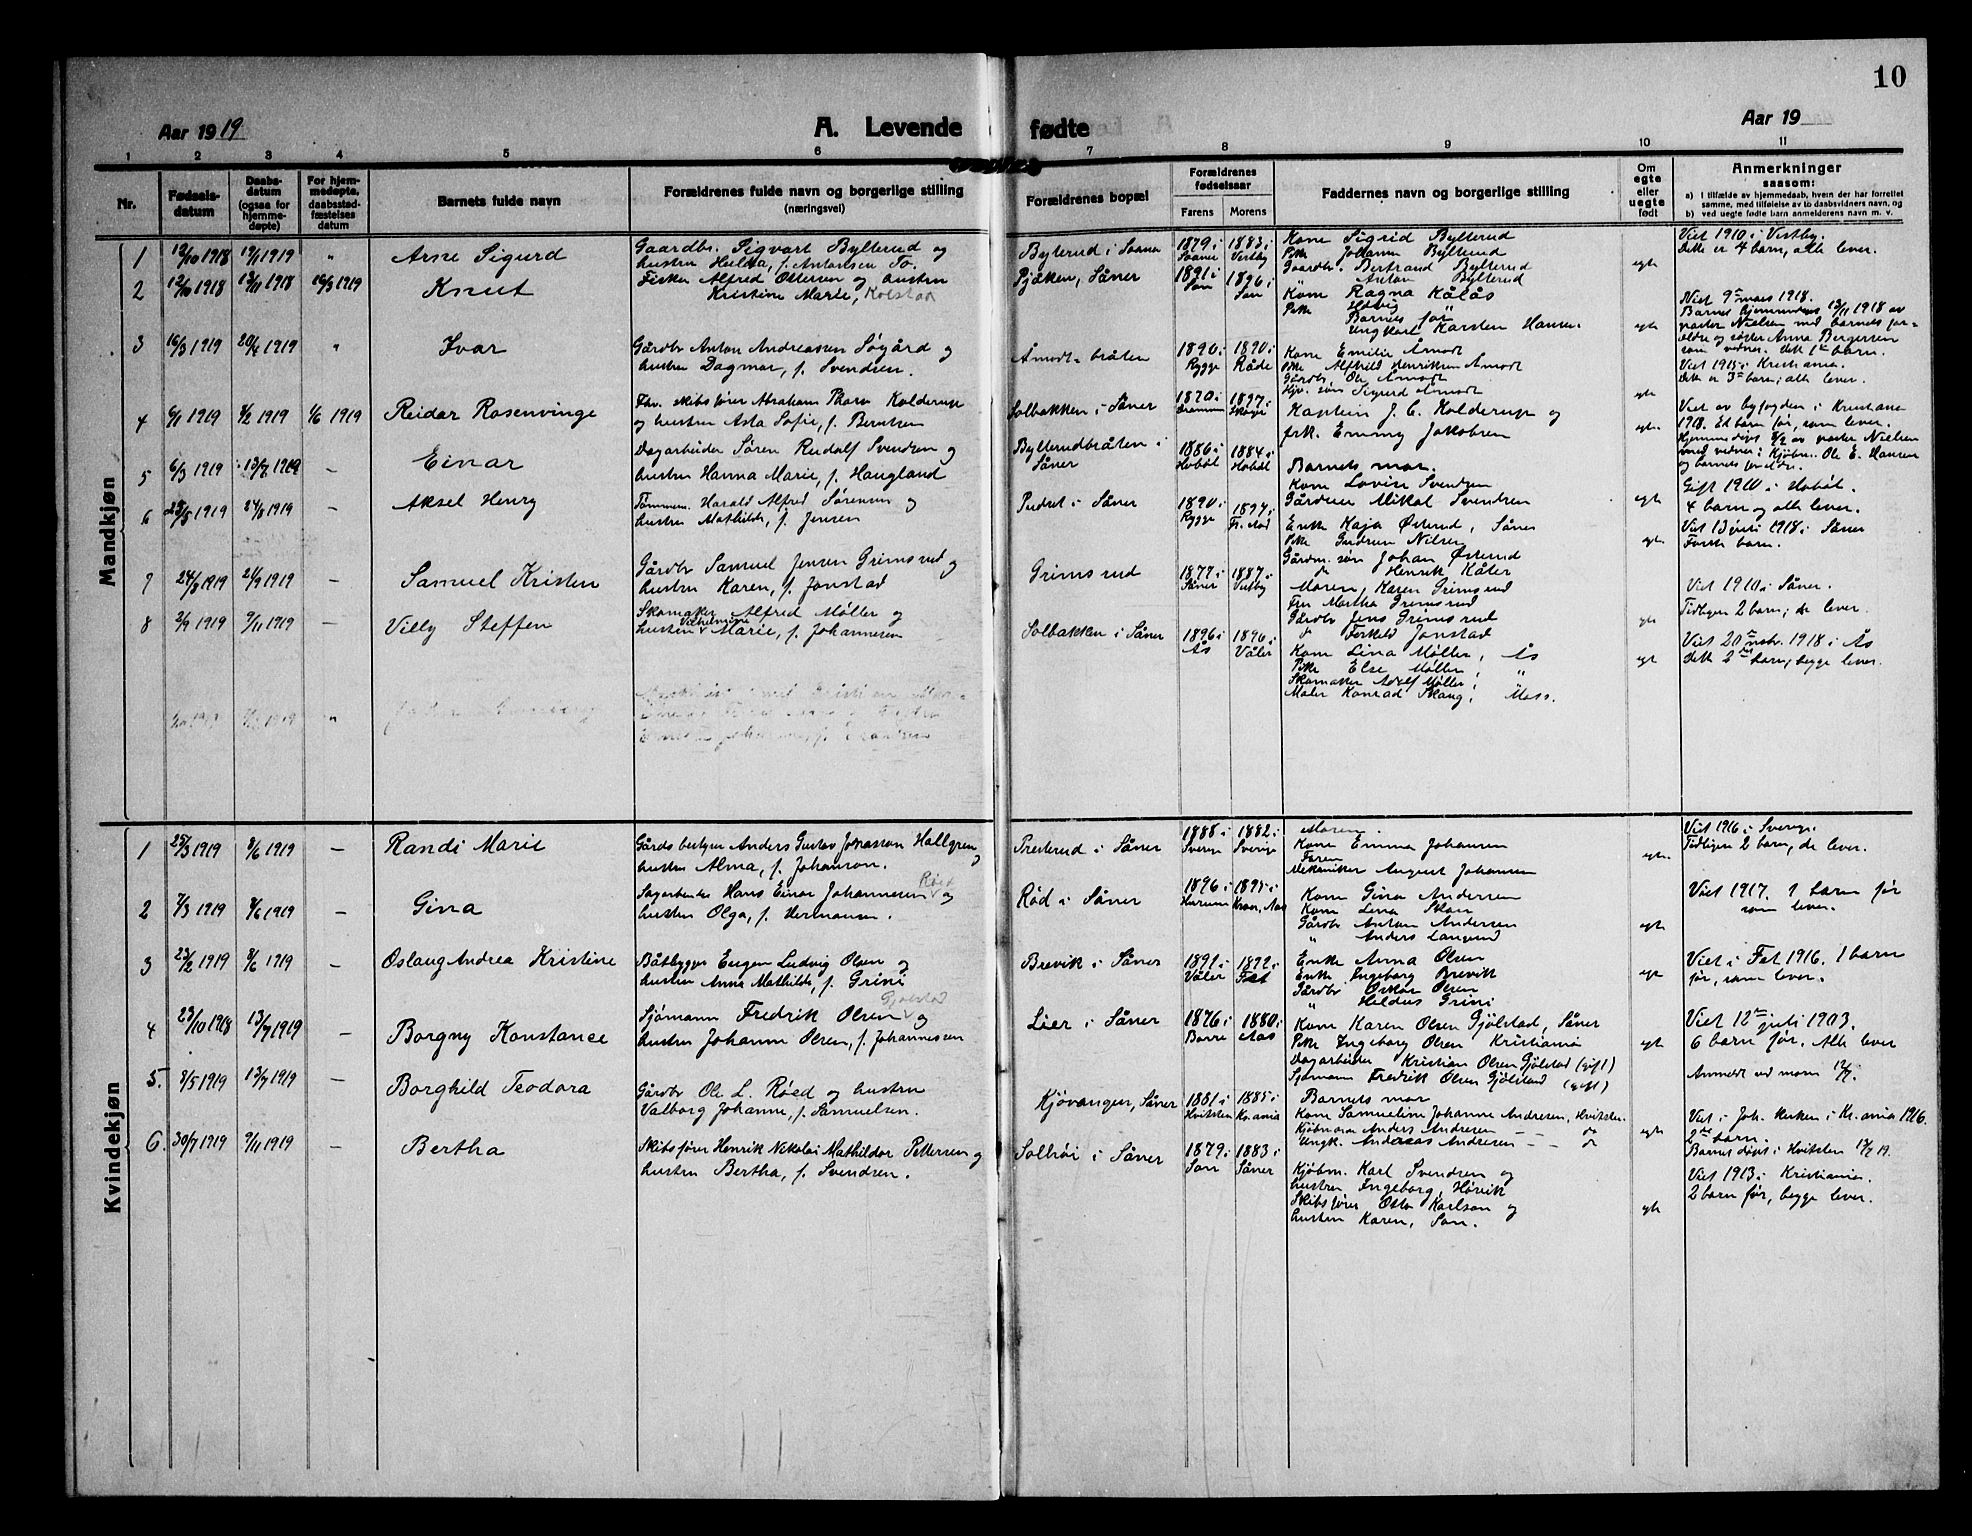 10
Aar 1919
A. Levende fødte
Aar 19
1 2 3 4 5 6 7 8 9 10 11
Nr.
Fødsels-
datum
Daabs-
datum
(ogsaa for
hjemme-
døpte)
For hjem-
medøpte,
daabsstad-
fæstelses
datum
Barnets fulde navn
Forældrenes fulde navn og borgerlige stilling
(næringsvei)
Forældrenes bopæl
Forældrenes
fødselsaar
Farens Morens
Faddernes navn og borgerlige stilling
Om
egte
eller
uegte
født
Anmerkninger
saasom:
a) i tilfælde av hjemmedaab, hvem der har forrettet
samme, med tilføielse av to daabsvidners navn, og
b) ved uegte fødte barn anmelderens navn m. v.
Mandkjøn
1 12/10 1918 19/1 1919 " Arne Sigurd
Gaardbr. Sigvart Bylterud og
hustru Hulda, f. Antonsen
Bylterud i Soner
1879 i Soner 1883 i Vestby
Kone Sigrid Bylterud
Pike Johanne Bylterud
Gaardbr. Bertrand Bylterud
Anton Bylterud
egte
Viet 1910 i Vestby.
Dette er 4 barn, alle lever.
2 12/10 1918 13/11 1918 16/3 1919 Knut
Fisker Alfred Ottersen og hustru
Kristine Marie, Kolstad
Pjåkken, Såner
1891 i Son 1896 i Son
Kone Ragna Kålås
Pike Hedvig "
Barnets far
Ungkarl Karsten Hansen
egte
Viet 9de mars 1918.
Barnet hjemmedøpt 13/11 1918 av
pastor Nielsen med barnets for-
ældre og søster Anna Bergersen
som vidner. Dette 1ste barn.
3 16/3 1919 20/4 1919 " Ivar
Gårdbr Anton Andreassen Søgård og
hustru Dagmar, f. Svendsen.
Åmodt-bråten
1890 i Rygge 1890 i Råde
Kone Emilie Åmodt
Pike Alfhild Henriksen Åmodt
Gårdbr. Ole Åmodt
Gbr. søn Sigurd Åmodt
egte
Viet 1915 i Kristiania.
Dette er 3de barn; alle lever.
4 6/1 1919 9/2 1919 1/6 1919 Reidar Rosenvinge
Fhv. skibsfører Abraham Thorn Kolderup
og hustru Asta Sofie, f. Berntsen
Solbakken i Såner
1870 i Drammen 1897 i
Kaptein J. C. Kolderup og
frk. Emmy Jakobsen
egte.
Viet av byfogden i Kristiania
1918. Et barn før, som lever.
Hjemmedøpt 9/2 av pastor Nielsen
med vidner: Kjøbm. Ole E. Hansen
og barnets forældre.
5 6/3 1919 13/8 1919 – Einar
Dagarbeider Søren Rudolf Svendsen og
hustru Hanna Marie, f. Haugland
Bylterudbråten i
Såner
1886 i Hobøl 1884 i Hobøl
Barnets mor.
Kone Lovise Svendsen
Gårdeier Mikal Svendsen
egte
Gift 1910 i Hobøl.
4 barn og alle lever.
6 23/5 1919 24/8 1919 – Aksel Henry
Tømmerm. Harald Alfred Sørensen og
hustru Mathilde, f. Jensen
i Såner
1890 i Rygge 1894 i Fr.stad
Enke Kaja Østerud, Såner
Pike Gudrun Nilsen
Gårdm. søn Johan Østerud
do Henrik Kåter
egte.
Viet 13 juli 1918 i Såner
Første barn.
7 24/8 1919 21/9 1919 – Samuel Kristen
Gårdbr Samuel Jensen Grimsrud og
hustru Karen, f. Jonstad
Grimsrud
1877 i Såner 1887 i Vestby
Moren, Karen Grimsrud
Fru Martha Grimsrud
Gårdbr Jens Grimsrud
do Torkild Jonstad
egte
Viet 1910 i Såner.
Tidligere 2 barn; de lever.
8 2/9 1919 9/11 1919 – Villy Steffen
Skomaker Alfred Møller og
hustru Vilhelmine Marie, f. Johannesen
Solbakken i Såner
1896 i Ås 1896 i Våler
Kone Lina Møller, Ås
Pike Else Møller "
Skomaker Adolf Møller; "
Maler Konrad Skaug, Moss.
egte
Viet 20de novbr. 1918 i Ås
Dette 2det barn; begge lever.
Kvindekjøn
1 25/3 1919 8/6 1919 – Randi Marie
Gårdsbestyrer Anders Gustav Jonasson Hallgren og
hustru Alma, f. Johanson.
Presterud i Såner
1888 i Sverige 1882 i Sverige
Moren.
Kone Emma Johansen
Faren
Mekaniker August Johansen
egte.
Viet 1916 i Sverige.
Tidligere 2 barn, de lever.
2 7/3 1919 8/6 1919 – Gina
Sagarbeider Hans Einar Johannesen Røed og
hustru Olga, f. Hermansen.
Rød i Såner
1896 i Hurum 1895 i
Kone Gina Andersen
Kone Lina
Gårdbr Anton Andersen
" Anders Langrud
egte
Viet 1917. 1 barn før
som lever.
3 23/2 1919 8/6 1919 – Oslaug Andrea Kristine
Båtbygger Eugen Ludvig Olsen og
hustru Anna Mathilde, f. Grini
Brevik i Såner
1891 i Våler 1892 i Fet
Enke Anna Olsen
Enke Ingeborg Brevik
Gårdbr Oskar Olsen
" Heldus Grini
egte
Viet i Fet 1916. 1 barn
før, som lever.
4 23/10 1918 13/7 1919 – Borgny Konstance
Sjømann Fredrik Olsen Gjølstad og
hustru Johanne Olsen, f. Johannessen
Lier i Såner
1876 i Borre 1880 i Aas
Kone Karen Olsen Gjølstad, Såner
Pike Ingeborg Olsen Kristiania
Dagarbeider Kristian Olsen Gjølstad (gift)
Sjømann Fredrik Olsen Gjølstad (gift)
egte
Viet 12te juli 1903.
6 barn før, alle lever
Anmeldt ved moren 12/7.
5. 9/5 1919 13/7 1919 – Borghild Teodora
Gårdbr Ole L. Røed og hustru
Valborg Johanne, f. Samuelsen.
Kjøvangen, Såner
1881 i Hvitsten 1885 i Kr.ania
Barnets mor
Kone Samueline Johanne Andresen, Hvitsten.
Kjøbmann Anders Andresen – do
Ungk. Andreas Andresen – do
egte
Viet i Joh. kirken i Kr.ania 1916.
2det barn.
Barnet døpt i Hvitsten 13/7 19.
6. 30/7 1919 9/11 1919 – Bertha
Skibsfører Henrik Nikolai Mathildor Pettersen og
hustru Bertha, f. Svendsen.
Solhøi i Såner
1879 i Son 1883 i Såner
Kjøbm. Karl Svendsen og
hustru Ingeborg, Hørvik
Skibsfører Otto Karlson og
hustru Karen, Son.
egte
Viet 1913 i Kristiania.
2 barn før, begge lever.